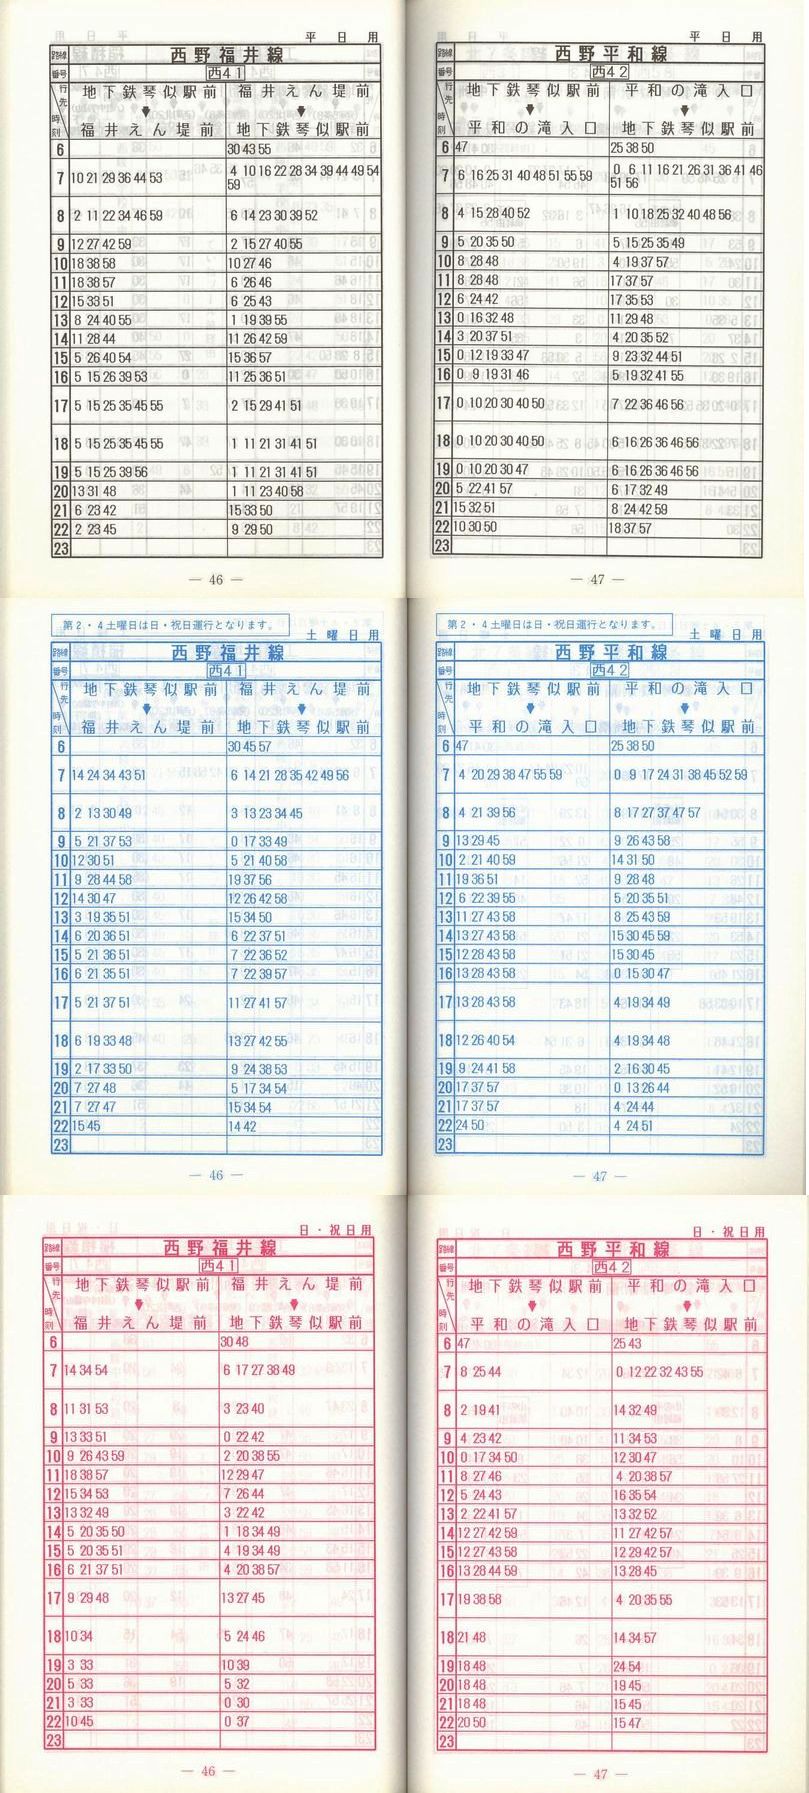 平日用
路線 西野福井線
番号 西41
行先 地下鉄琴似駅前 福井えん堤前
時刻 福井えん堤前 地下鉄琴似駅前
6 30 43 55
7 10 21 29 36 44 53 4 10 16 22 28 34 39 44 49 54
59
8 2 11 22 34 46 59 6 14 23 30 39 52
9 12 27 42 59 2 15 27 40 55
10 18 38 58 10 27 46
11 18 38 57 6 26 46
12 15 33 51 6 25 43
13 8 24 40 55 1 19 39 55
14 11 28 44 11 26 42 59
15 5 26 40 54 15 36 57
16 5 15 26 39 53 11 25 36 51
17 5 15 25 35 45 55 2 15 29 41 51
18 5 15 25 35 45 55 1 11 21 31 41 51
19 5 15 25 39 56 1 11 21 31 41 51
20 13 31 48 1 11 23 40 58
21 6 23 42 15 33 50
22 2 23 45 9 29 50
23
— 46 —
平日用
路線 西野平和線
番号 西42
行先 地下鉄琴似駅前 平和の滝入口
時刻 平和の滝入口 地下鉄琴似駅前
6 47 25 38 50
7 6 16 25 31 40 48 51 55 59 0 6 11 16 21 26 31 36 41 46
51 56
8 4 15 28 40 52 1 10 18 25 32 40 48 56
9 5 20 35 50 5 15 25 35 49
10 8 28 48 4 19 37 57
11 8 28 48 17 37 57
12 6 24 42 17 35 53
13 0 16 32 48 11 29 48
14 3 20 37 51 4 20 35 52
15 0 12 19 33 47 9 23 32 44 51
16 0 9 19 31 46 5 19 32 41 55
17 0 10 20 30 40 50 7 22 36 46 56
18 0 10 20 30 40 50 6 16 26 36 46 56
19 0 10 20 30 47 6 16 26 36 46 56
20 5 22 41 57 6 17 32 49
21 15 32 51 8 24 42 59
22 10 30 50 18 37 57
23
— 47 —
第2・4土曜日は日・祝日運行となります。
土曜日用
路線 西野福井線
番号 西41
行先 地下鉄琴似駅前 福井えん堤前
時刻 福井えん堤前 地下鉄琴似駅前
6 30 45 57
7 14 24 34 43 51 6 14 21 28 35 42 49 56
8 2 13 30 49 3 13 23 34 45
9 5 21 37 53 0 17 33 49
10 12 30 51 5 21 40 58
11 9 28 44 58 19 37 56
12 14 30 47 12 26 42 58
13 3 19 35 51 15 34 50
14 6 20 36 51 6 22 37 51
15 5 21 36 51 7 22 36 52
16 6 21 35 51 7 22 39 57
17 5 21 37 51 11 27 41 57
18 6 19 33 48 13 27 42 55
19 2 17 33 50 9 24 38 53
20 7 27 48 5 17 34 54
21 7 27 47 15 34 54
22 15 45 14 42
23
— 46 —
第2・4土曜日は日・祝日運行となります。
土曜日用
路線 西野平和線
番号 西42
行先 地下鉄琴似駅前 平和の滝入口
時刻 平和の滝入口 地下鉄琴似駅前
6 47 25 38 50
7 4 20 29 38 47 55 59 0 9 17 24 31 38 45 52 59
8 4 21 39 56 8 17 27 37 47 57
9 13 29 45 9 26 43 58
10 2 21 40 59 14 31 50
11 19 36 51 9 28 48
12 6 22 39 55 5 20 35 51
13 11 27 43 58 8 25 43 59
14 13 27 43 58 15 30 45 59
15 12 28 43 58 15 30 45
16 13 28 43 58 0 15 30 47
17 13 28 43 58 4 19 34 49
18 12 26 40 54 4 19 34 48
19 9 24 41 58 2 16 30 45
20 17 37 57 0 13 26 44
21 17 37 57 4 24 44
22 24 50 4 24 51
23
— 47 —
日・祝日用
路線 西野福井線
番号 西41
行先 地下鉄琴似駅前 福井えん堤前
時刻 福井えん堤前 地下鉄琴似駅前
6 30 48
7 14 34 54 6 17 27 38 49
8 11 31 53 3 23 40
9 13 33 51 0 22 42
10 9 26 43 59 2 20 38 55
11 18 38 57 12 29 47
12 15 34 53 7 26 44
13 13 32 49 3 22 42
14 5 20 35 50 1 18 34 49
15 5 20 35 51 4 19 34 49
16 6 21 37 51 4 20 38 57
17 9 29 48 13 27 45
18 10 34 5 24 46
19 3 33 10 39
20 5 33 5 32
21 3 33 0 30
22 10 45 0 37
23
— 46 —
日・祝日用
路線 西野平和線
番号 西42
行先 地下鉄琴似駅前 平和の滝入口
時刻 平和の滝入口 地下鉄琴似駅前
6 47 25 43
7 8 25 44 0 12 22 32 43 55
8 2 19 41 14 32 49
9 4 23 42 11 34 53
10 0 17 34 50 12 30 47
11 8 27 46 4 20 38 57
12 5 24 43 16 35 54
13 2 22 41 57 13 32 52
14 12 27 42 59 11 27 42 57
15 12 27 43 58 12 29 42 57
16 13 28 44 59 13 28 45
17 19 38 58 4 20 35 55
18 21 48 14 34 57
19 18 48 24 54
20 18 48 19 45
21 18 48 15 45
22 20 50 15 47
23
— 47 —